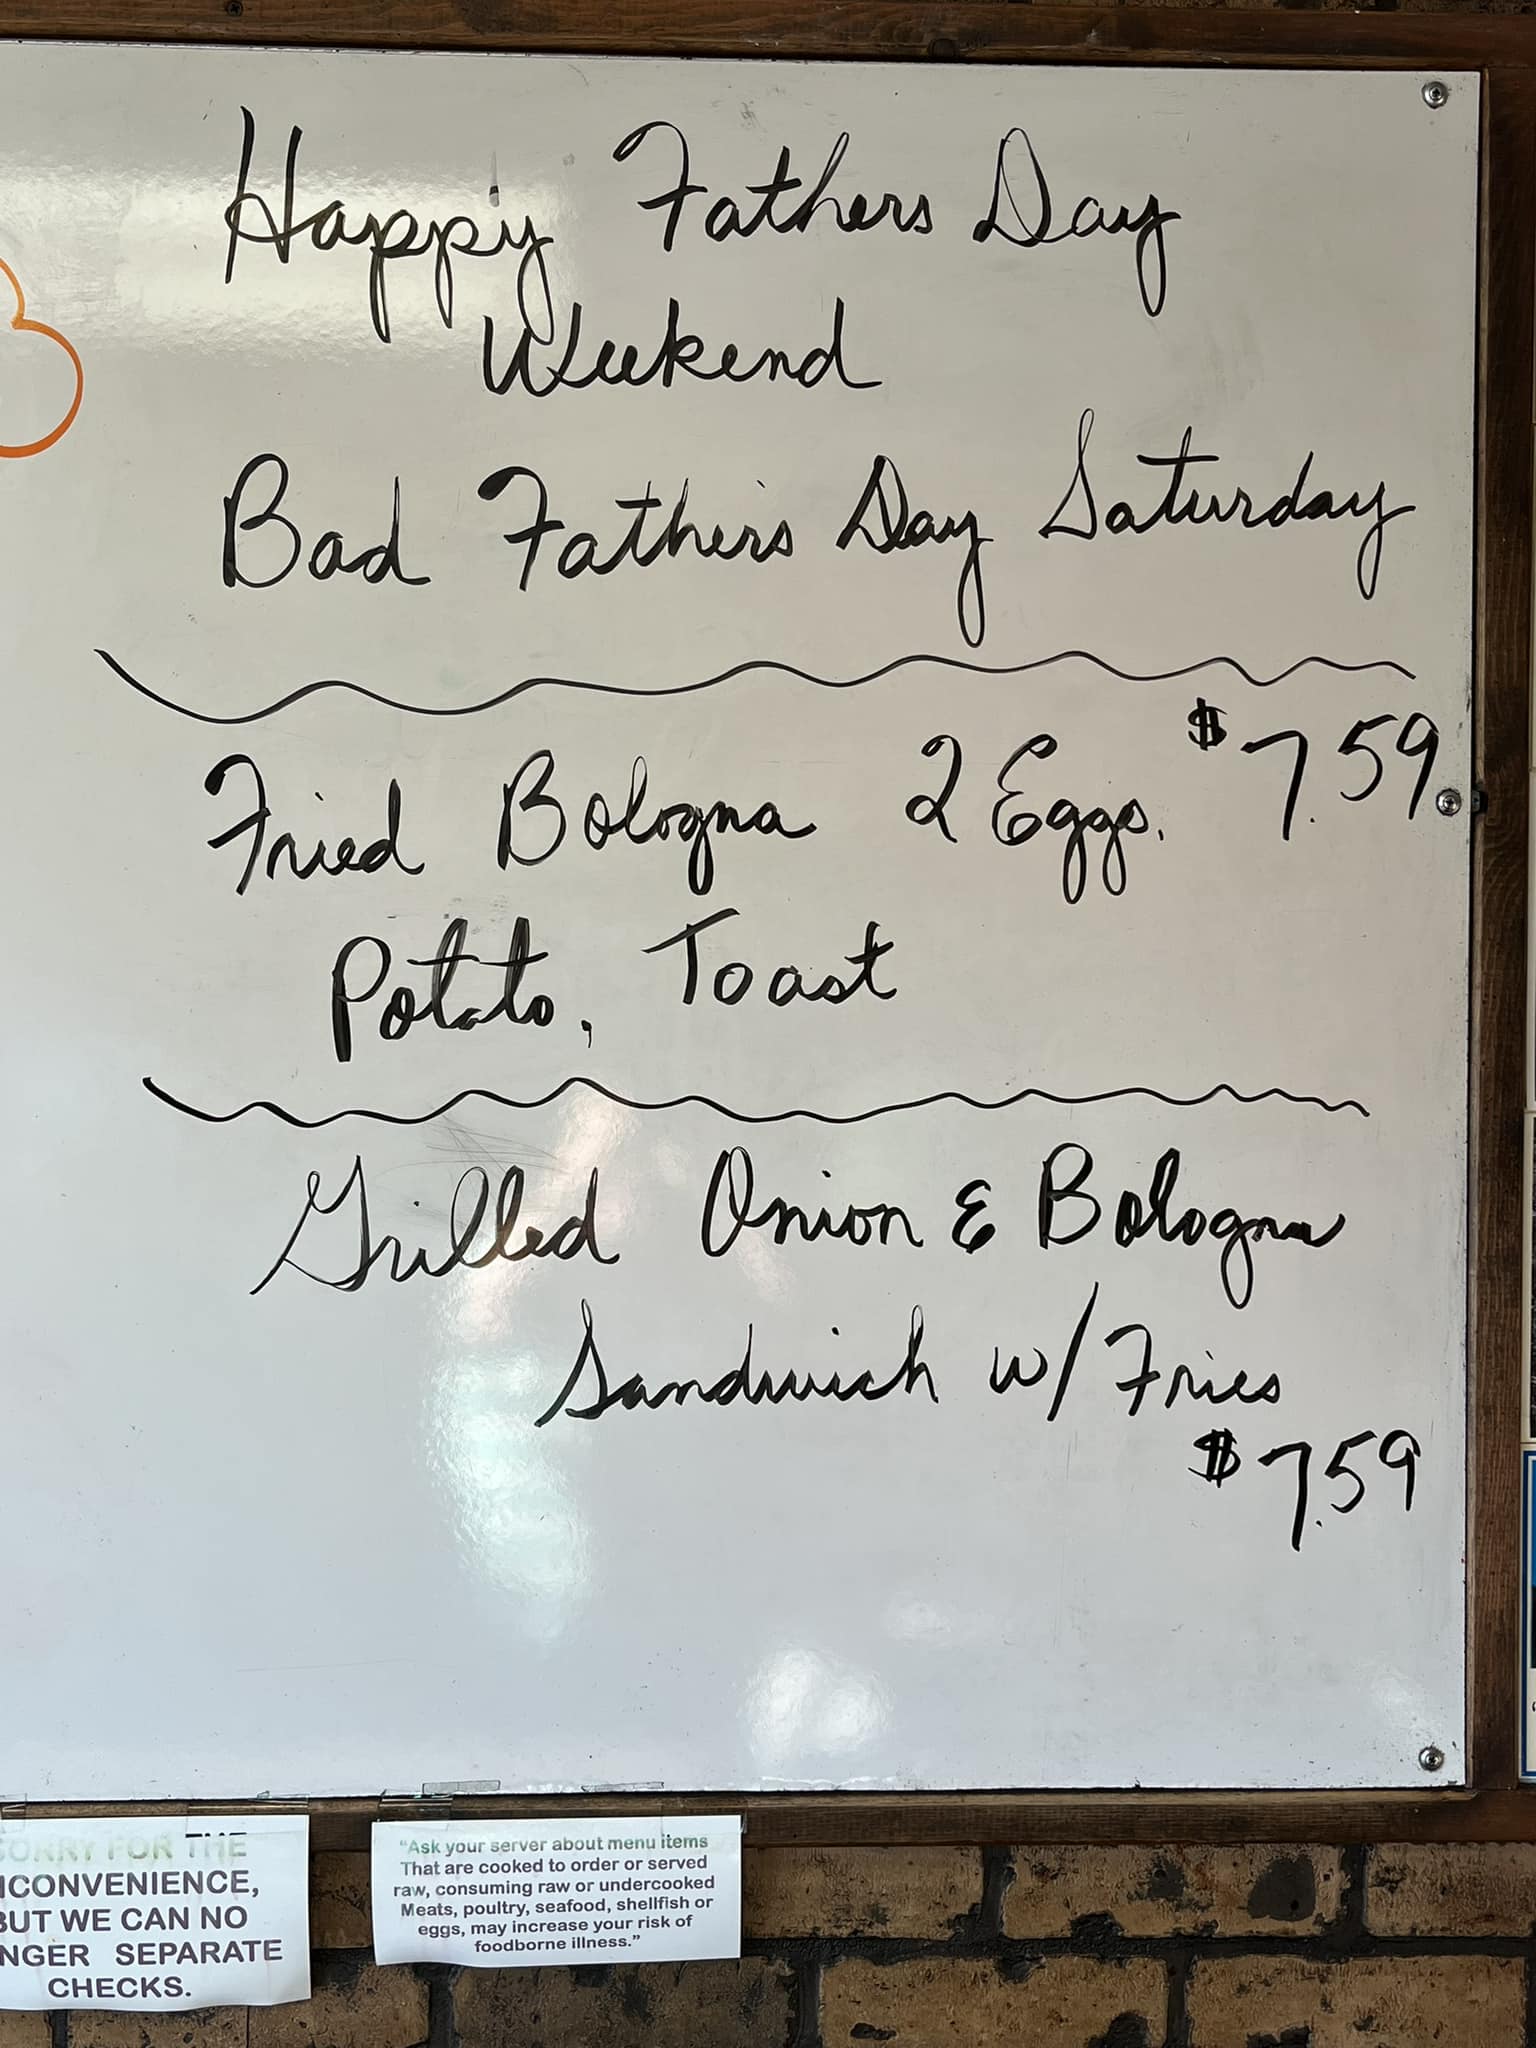 Happy Fathers Day
Weekend
Bad Father's Day Saturday
Fried Bologna 2 Eggs. $7.59
Potato, Toast
Grilled Onion & Bologna
Sandwich w/ Fries
$7.59
SORRY FOR THE
NCONVENIENCE,
BUT WE CAN NO
NGER SEPARATE
CHECKS.
"Ask your server about menu items
That are cooked to order or served
raw, consuming raw or undercooked
Meats, poultry, seafood, shellfish or
eggs, may increase your risk of
foodborne illness."